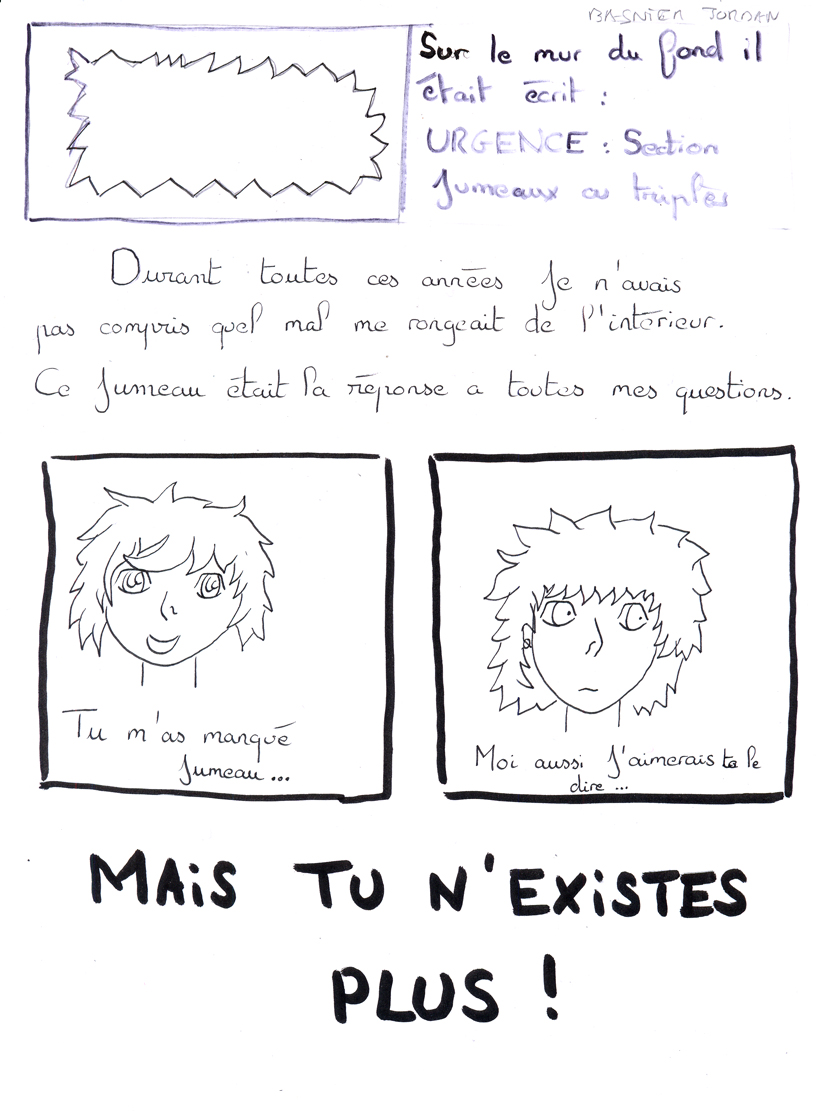 BASNIER JORDAN
Sur le mur du fond il
était écrit :
URGENCE : Section
Jumeaux ou triplés
Durant toutes ces années Je n'avais
pas compris quel mal me rongeait de l'intérieur.
Ce Jumeau était la réponse a toutes mes questions.
Tu m'as manqué
Jumeau ...
Moi aussi J'aimerais te le
dire ...
MAiS TU N'EXiSTES
PLUS !